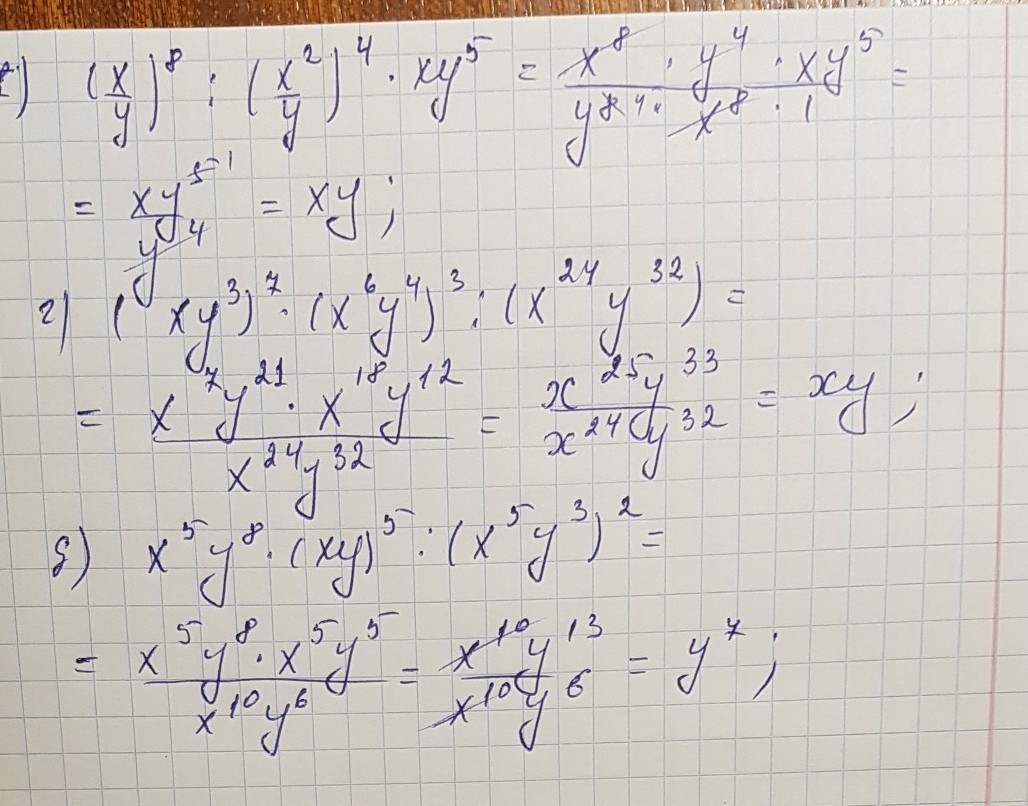 (x/y)⁸ : (x²/y)⁴ · xy⁵ = (x⁸ · y⁴ · xy⁵)/(y⁸ ⁴ · x⁸ · 1) =
= xy⁵ ¹/y⁴ = xy ;
г) (xy³)⁷ · (x⁶y⁴)³ : (x²⁴y³²) =
= (x⁷y²¹ · x¹⁸y¹²)/(x²⁴y³²) = (x²⁵y³³)/(x²⁴y³²) = xy ;
g) x⁵y⁸ · (xy)⁵ : (x⁵y³)² =
= (x⁵y⁸ · x⁵y⁵)/(x¹⁰y⁶) = (x¹⁰y¹³)/(x¹⁰y⁶) = y⁷ ;